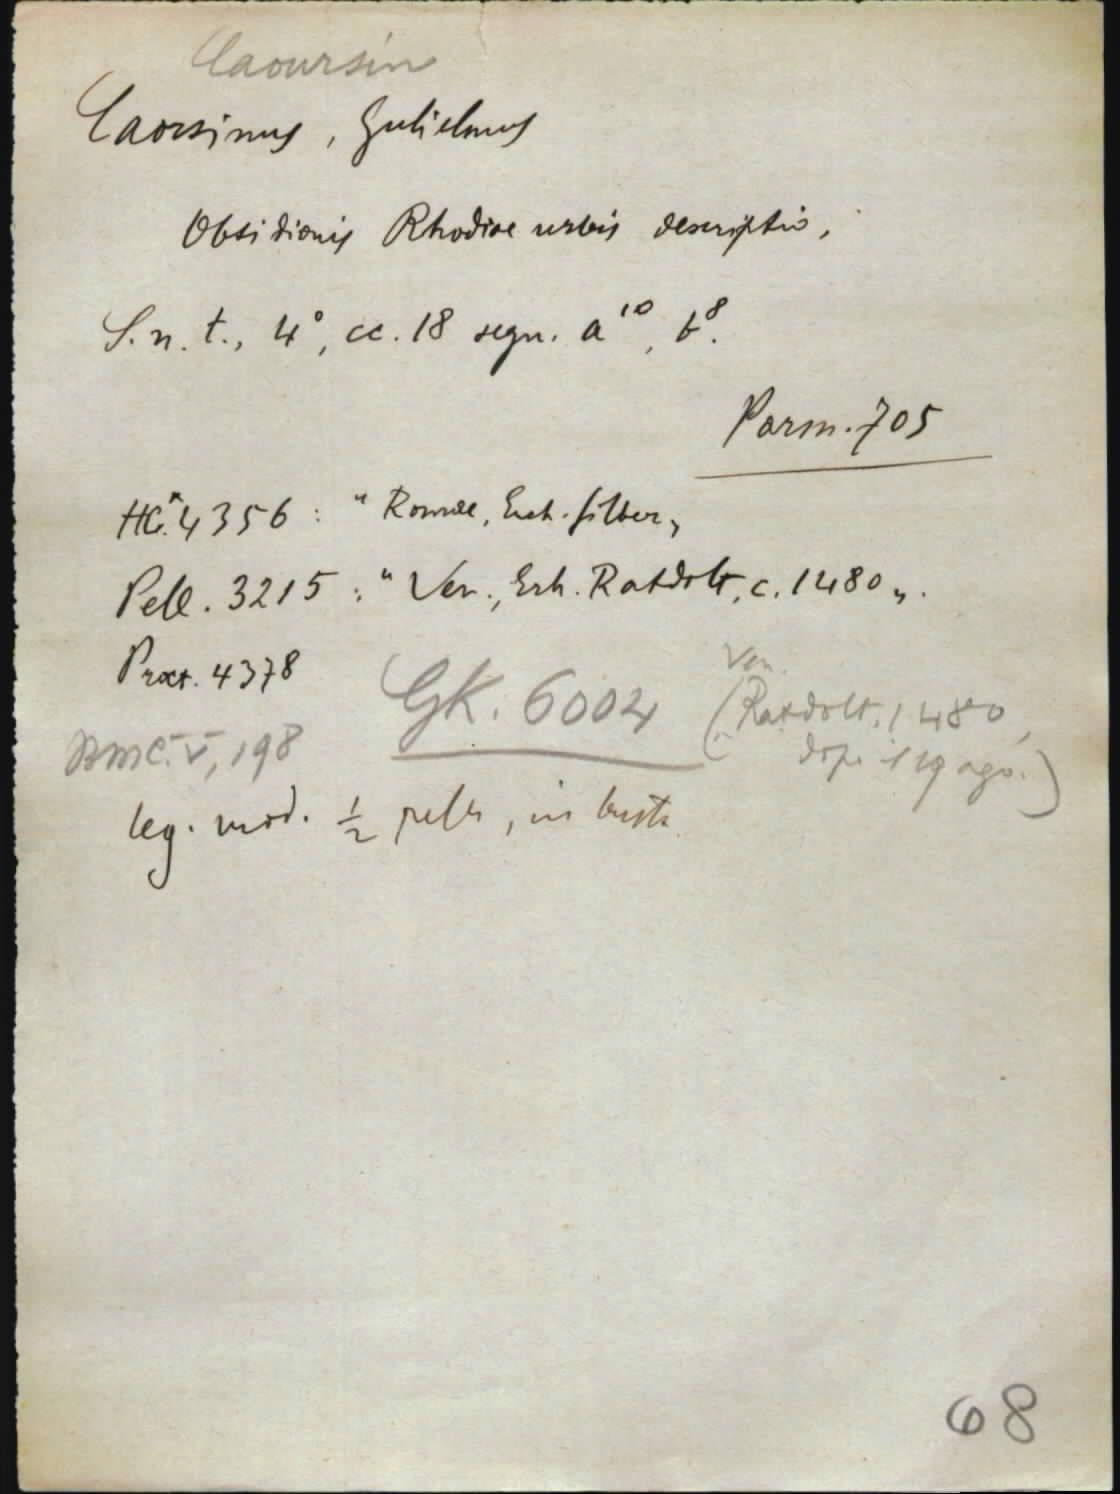 Caoursin
Caorsinus, Gulielmus
Obsidionis Rhodiae urbis descriptio,
S. n. t., 4°, cc. 18 segn. a¹⁰, b⁸.
Parm. 705
HC.* 4356 : "Romae, Euch. Silber„
Pell. 3215 : "Ven., Erh. Ratdolt, c. 1480„.
Proct. 4378
GK. 6004 (Ven. Ratdolt, 1480,
dopo il 19 ago.)
BMC. V, 198
leg. mod. ½ pelle, in busta
68